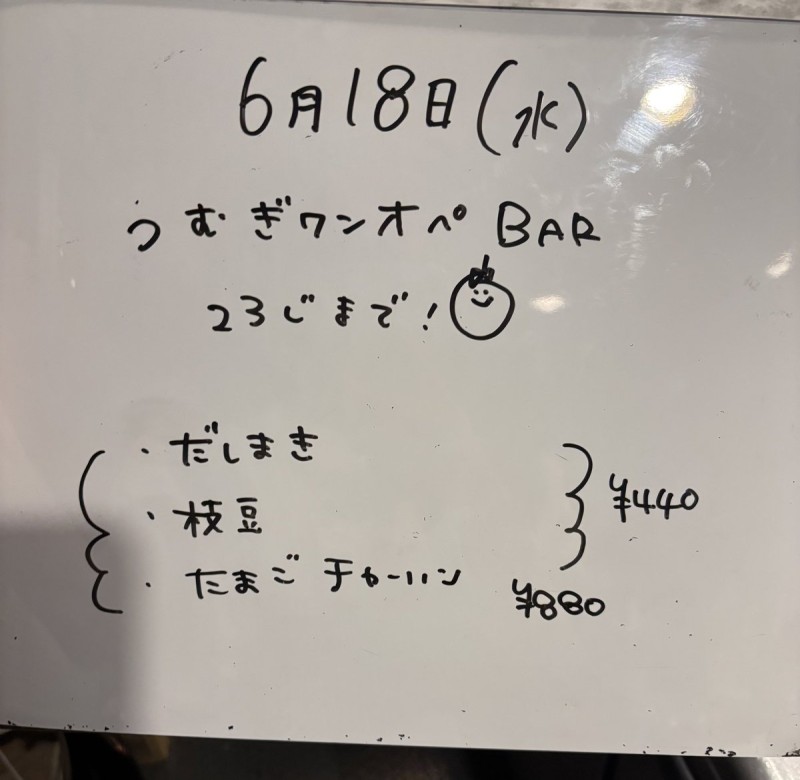 6月18日(水)
つむぎワンオペBAR
23じまで!
・だしまき
・枝豆
¥440
・たまごチャーハン ¥880